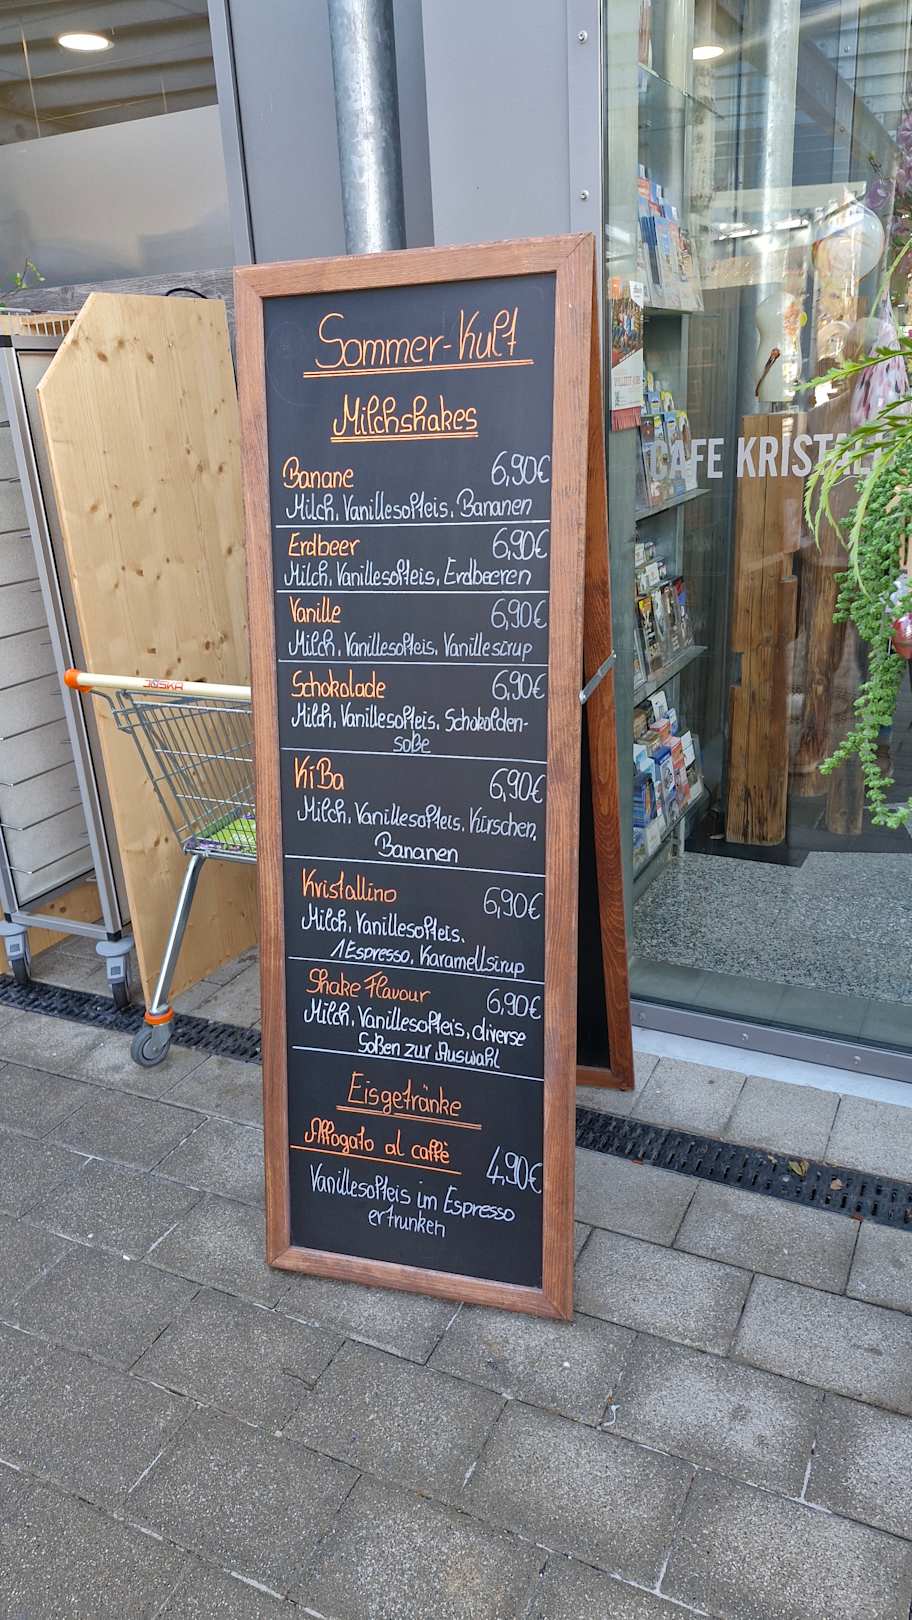 Sommer-Kult
Milchshakes
Banane 6,90€
Milch, Vanillesofteis, Bananen
Erdbeer 6,90€
Milch, Vanillesofteis, Erdbeeren
Vanille 6,90€
Milch, Vanillesofteis, Vanillesirup
Schokolade 6,90€
Milch, Vanillesofteis, Schokolden-
soße
KiBa 6,90€
Milch, Vanillesofteis, Kirschen,
Bananen
Kristallino 6,90€
Milch, Vanillesofteis,
1 Espresso, Karamellsirup
Shake Flavour 6,90€
Milch, Vanillesofteis, diverse
Soßen zur Auswahl
Eisgetränke
Affogato al caffè 4,90€
Vanillesofteis im Espresso
ertrunken
CAFE KRISTALL